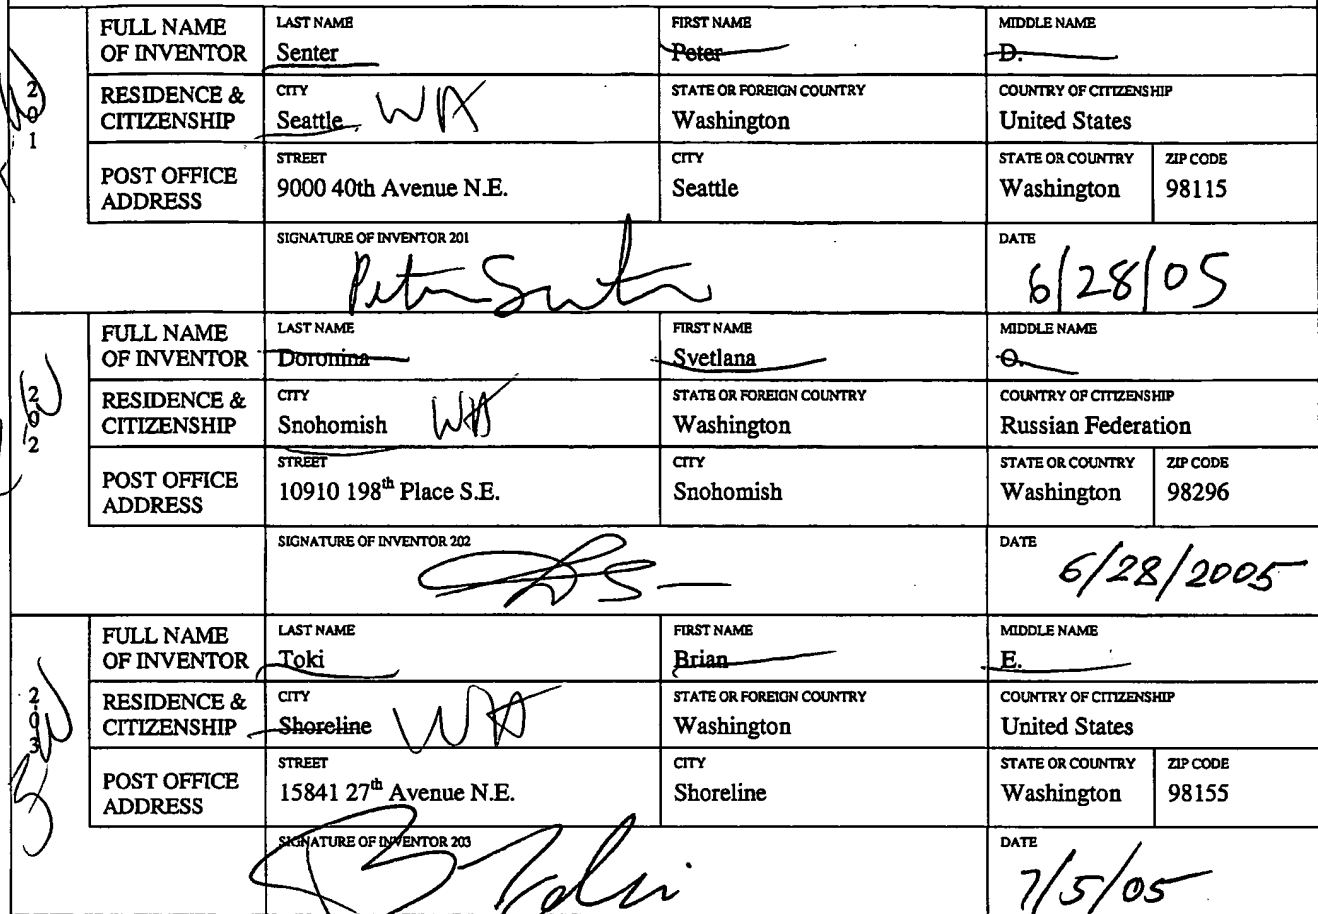 FULL NAME OF INVENTOR
LAST NAME
Senter
FIRST NAME
Peter
MIDDLE NAME
D.
201
RESIDENCE & CITIZENSHIP
CITY
Seattle WA
STATE OR FOREIGN COUNTRY
Washington
COUNTRY OF CITIZENSHIP
United States
POST OFFICE ADDRESS
STREET
9000 40th Avenue N.E.
CITY
Seattle
STATE OR COUNTRY
Washington
ZIP CODE
98115
SIGNATURE OF INVENTOR 201
Peter Senter
DATE
6/28/05
FULL NAME OF INVENTOR
LAST NAME
Doronina
FIRST NAME
Svetlana
MIDDLE NAME
O.
202
RESIDENCE & CITIZENSHIP
CITY
Snohomish WA
STATE OR FOREIGN COUNTRY
Washington
COUNTRY OF CITIZENSHIP
Russian Federation
POST OFFICE ADDRESS
STREET
10910 198th Place S.E.
CITY
Snohomish
STATE OR COUNTRY
Washington
ZIP CODE
98296
SIGNATURE OF INVENTOR 202
DATE
6/28/2005
FULL NAME OF INVENTOR
LAST NAME
Toki
FIRST NAME
Brian
MIDDLE NAME
E.
203
RESIDENCE & CITIZENSHIP
CITY
Shoreline WA
STATE OR FOREIGN COUNTRY
Washington
COUNTRY OF CITIZENSHIP
United States
POST OFFICE ADDRESS
STREET
15841 27th Avenue N.E.
CITY
Shoreline
STATE OR COUNTRY
Washington
ZIP CODE
98155
SIGNATURE OF INVENTOR 203
B Toki
DATE
7/5/05